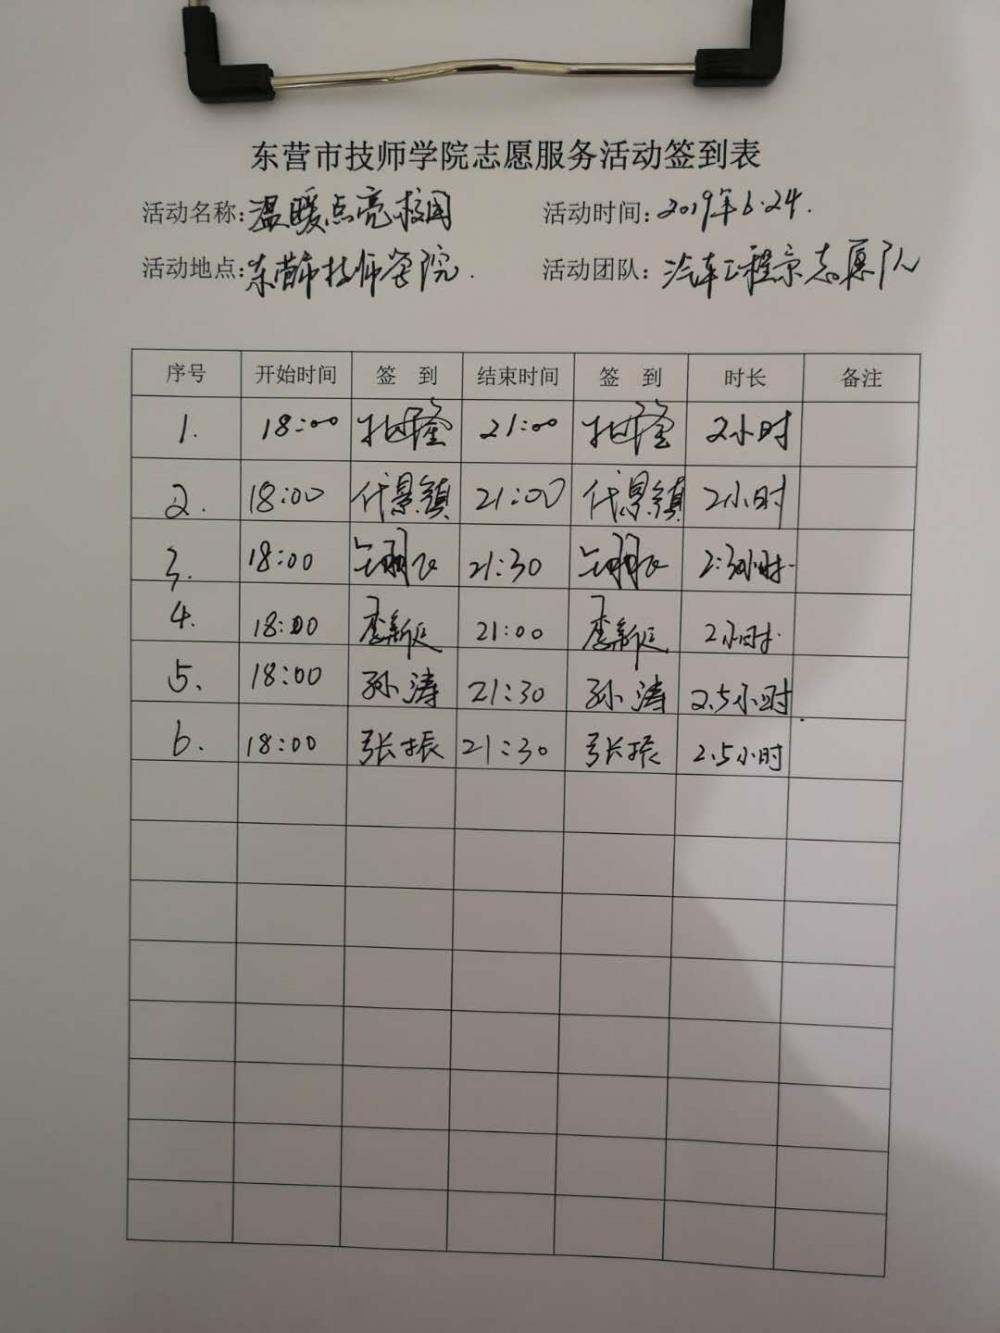 东营市技师学院志愿服务活动签到表
活动名称:温暖点亮校园 活动时间:2019年6.24.
活动地点:东营市技师学院. 活动团队:汽车工程系志愿队
序号 开始时间 签 到 结束时间 签 到 时长 备注
1. 18:00 21:00 2小时
2. 18:00 代景镇 21:00 代景镇 2小时
3. 18:00 21:30 2:30小时.
4. 18:00 李新 21:00 李新 2小时.
5. 18:00 孙涛 21:30 孙涛 2.5小时
6. 18:00 张振 21:30 张振 2.5小时